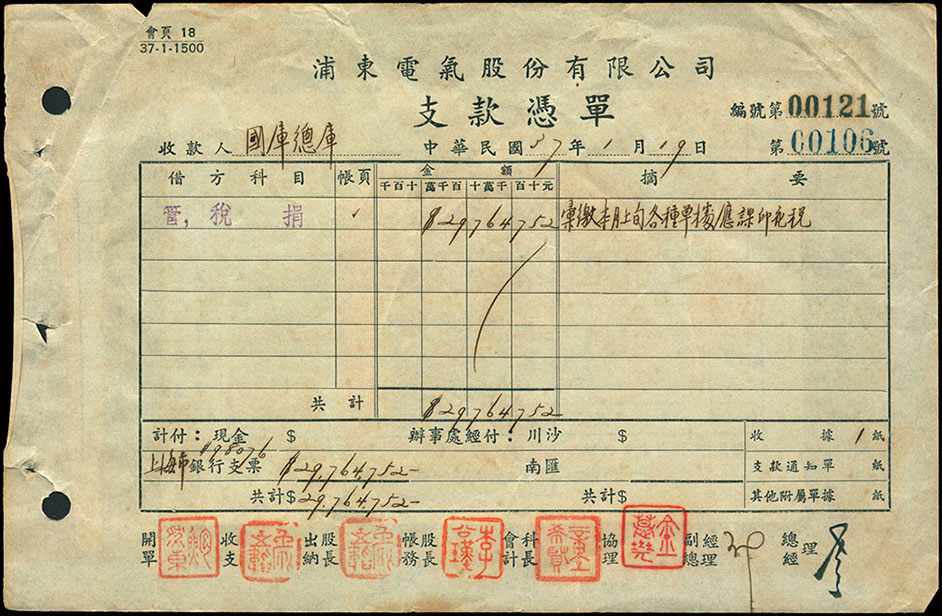 會頁 18
37-1-1500
浦東電氣股份有限公司
支款憑單
編號第00121號
收款人 國庫總庫 中華民國37年1月19日 第00106號
借方科目 帳頁 金額 摘要
千百十萬千百十萬千百十元
管,稅捐 $29,764,752 彙繳本月上旬各種單據應課印花稅
共計 $29,764,752
計付:現金 $ 辦事處經付:川沙 $ 收據1紙
198076
上海市銀行支票 $29,764,752- 南匯 支款通知單 紙
共計$29,764,752- 共計$ 其他附屬單據 紙
開單 收支 出納股長 帳務股長 會計科長 協理 副總經理 總經理